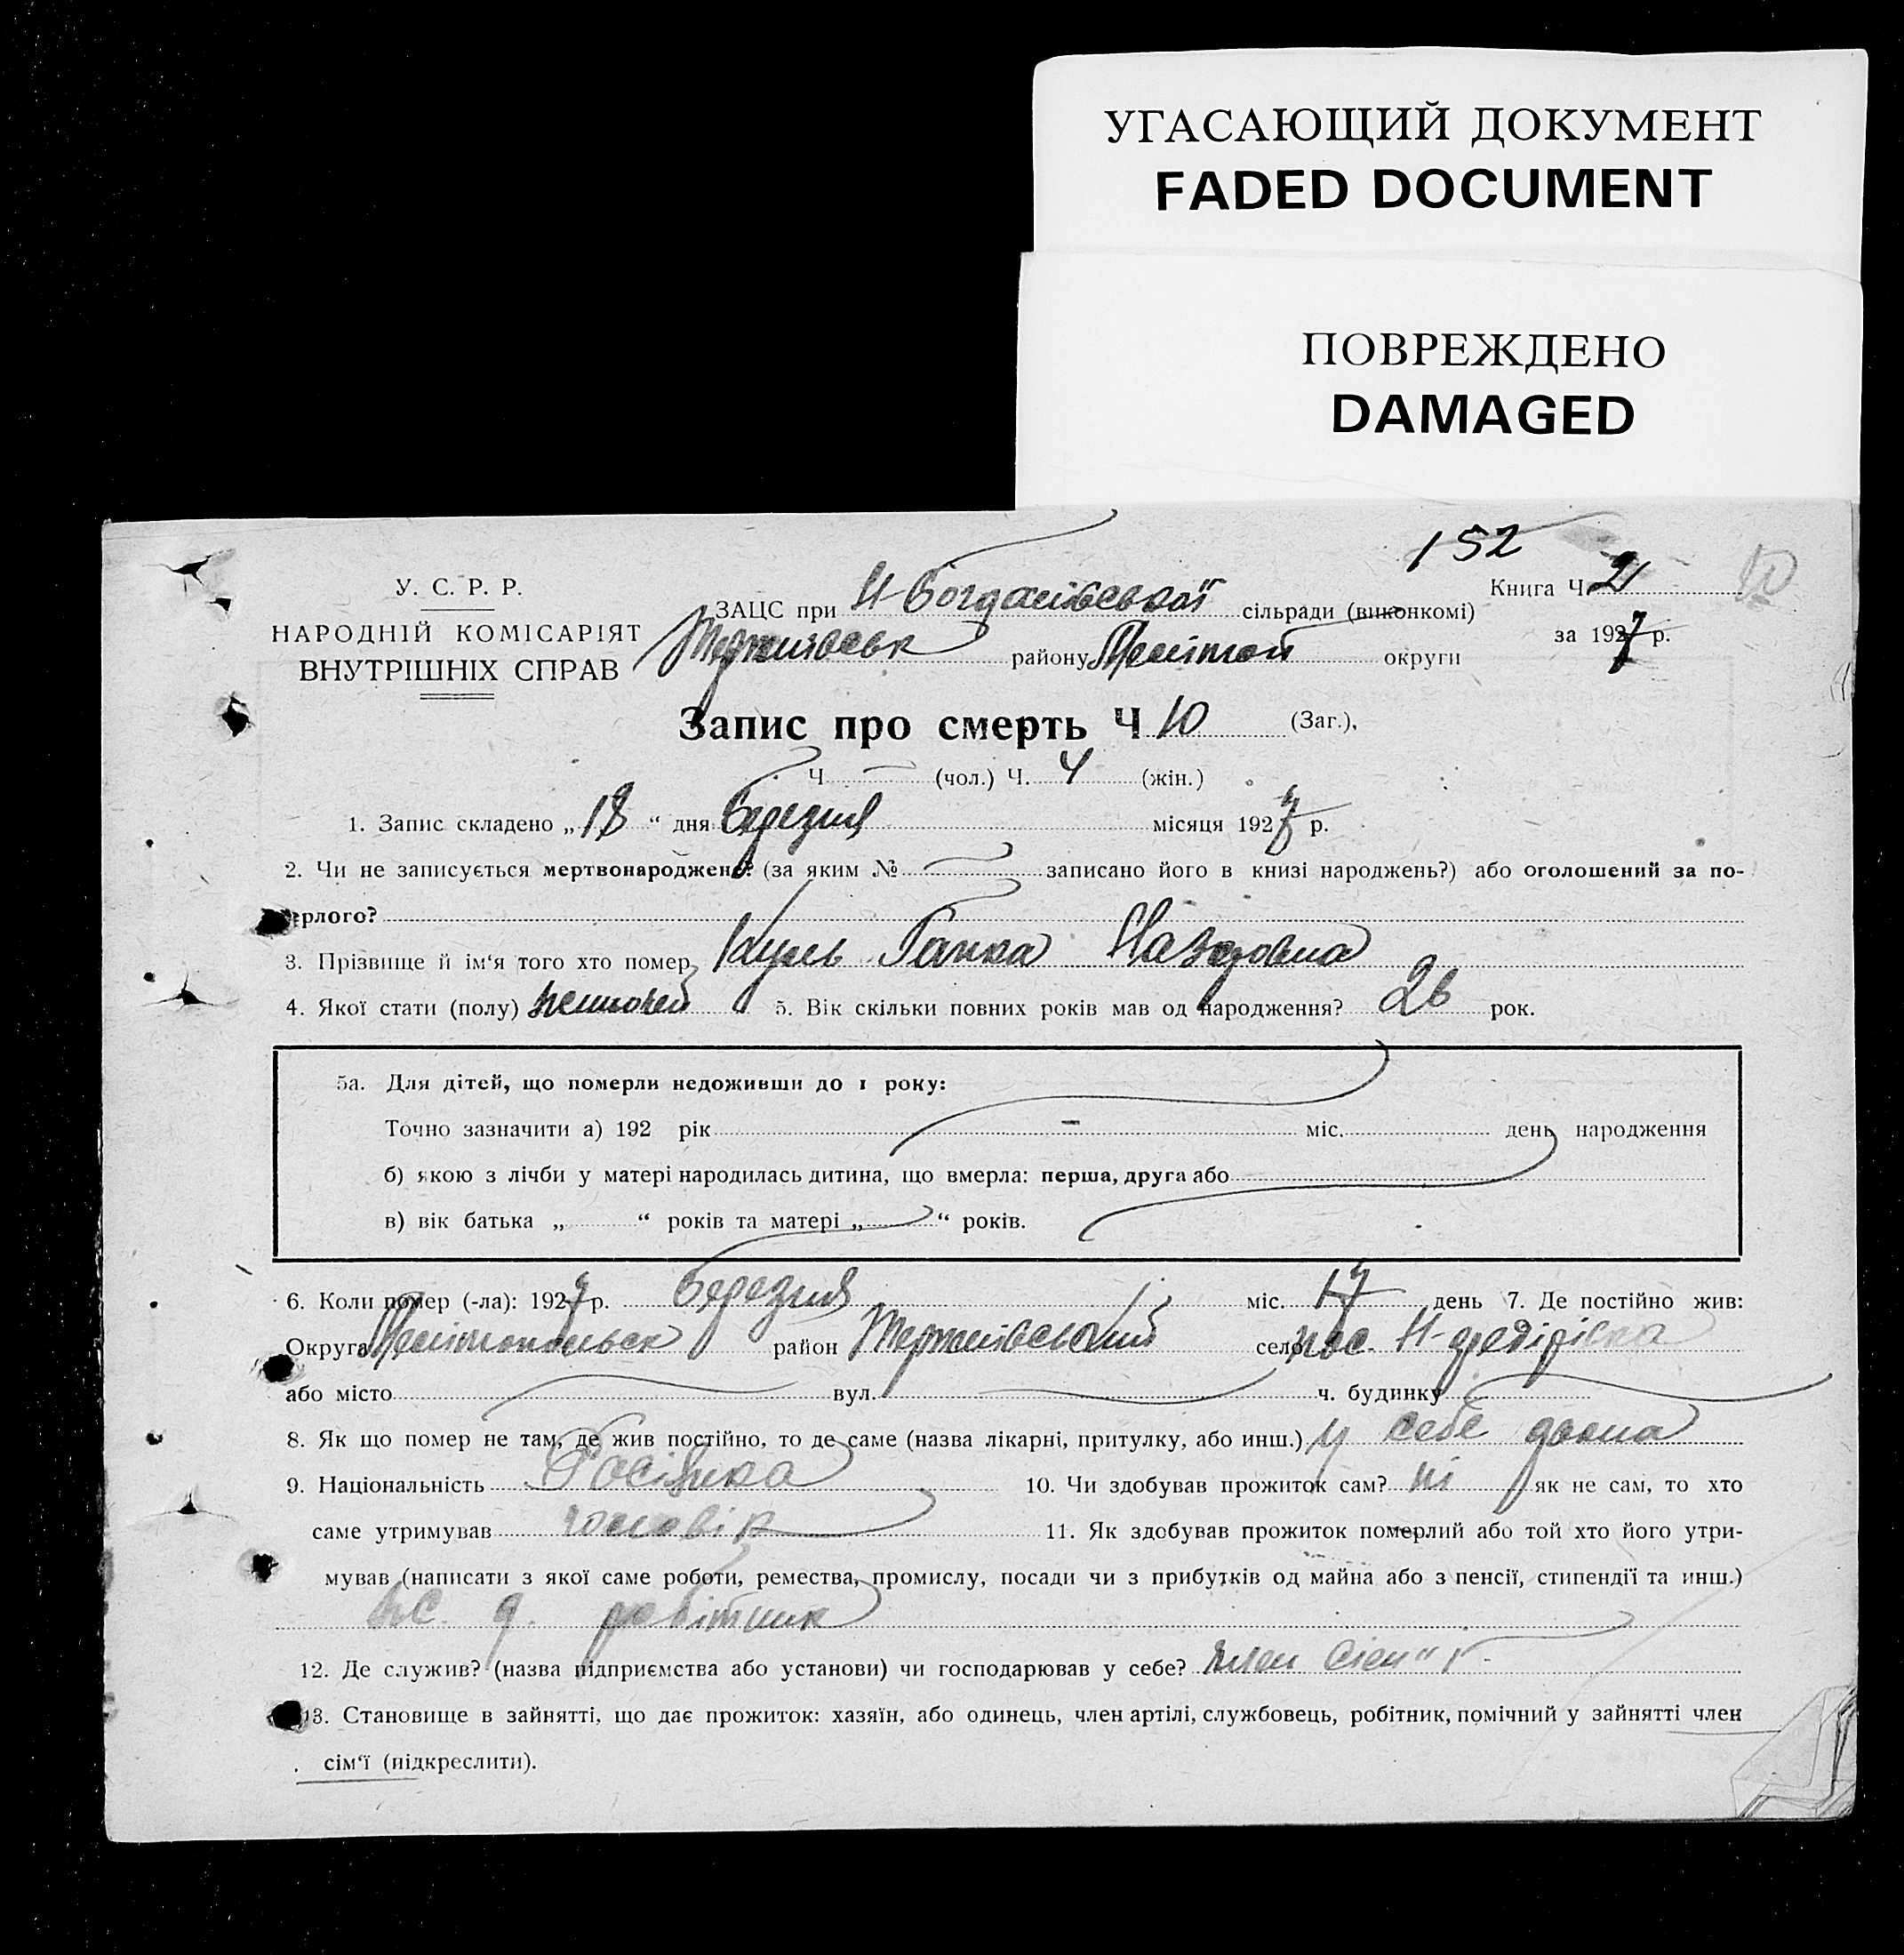 УГАСАЮЩИЙ ДОКУМЕНТ
FADED DOCUMENT
ПОВРЕЖДЕНО
DAMAGED
152
У. С. Р. Р.
НАРОДНІЙ КОМІСАРІЯТ
ВНУТРІШНІХ СПРАВ
ЗАЦС при Н-Богданівської сільради (виконкомі)
району округи
Книга Ч. 2
за 1927 р.
10
Запис про смерть Ч 10 (Заг.),
Ч. — (чол.) Ч. 4 (жін.)
1. Запис складено „18“ дня березня місяця 1927 р.
2. Чи не записується мертвонароджено? (за яким № записано його в книзі народжень?) або оголошений за по-
ерлого?
3. Прізвище й ім‘я того хто помер Ганна Назаровна
4. Якої стати (полу) 5. Вік скільки повних років мав од народження? 26 рок.
5а. Для дітей, що померли недоживши до 1 року:
Точно зазначити а) 192 рік — міс. день народження
б) якою з лічби у матері народилась дитина, що вмерла: перша, друга або
в) вік батька „ “ років та матері „ “ років.
6. Коли помер (-ла): 1927 р. березня міс. 17 день 7. Де постійно жив:
Округа район село
або місто вул. ч. будинку
8. Як що помер не там, де жив постійно, то де саме (назва лікарні, притулку, або инш.) у себе дома
9. Національність Росіянка 10. Чи здобував прожиток сам? ні як не сам, то хто
саме утримував чоловік 11. Як здобував прожиток померлий або той хто його утри-
мував (написати з якої саме роботи, ремества, промислу, посади чи з прибутків од майна або з пенсії, стипендії та инш.)
робітник
12. Де служив? (назва підприємства або установи) чи господарював у себе? член
13. Становище в зайнятті, що дає прожиток: хазяїн, або одинець, член артілі, службовець, робітник, помічний у зайнятті член
сім‘ї (підкреслити).